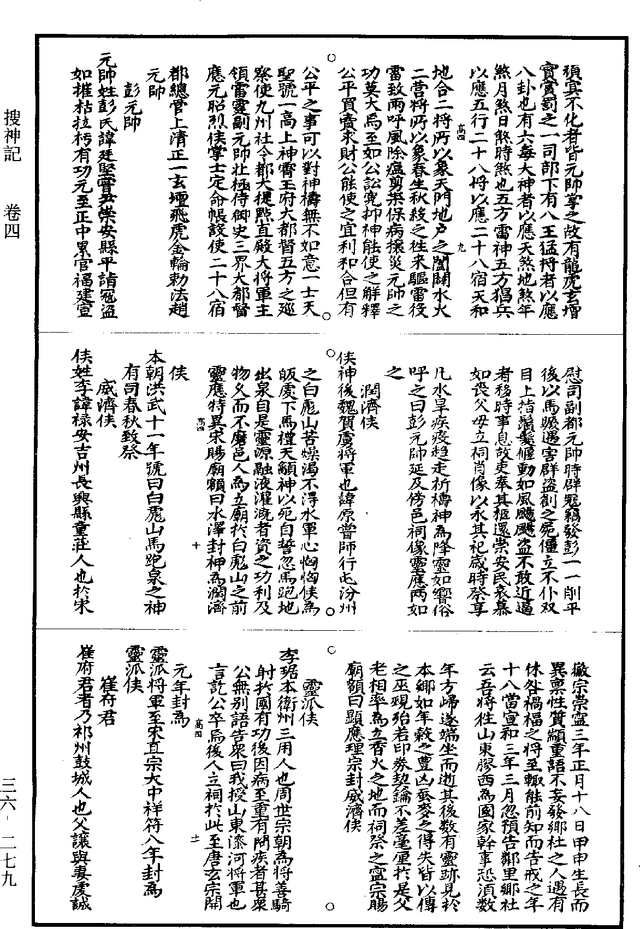 搜神記　卷四
三六‧二七九
須寘不化者皆元帥掌之故有龍虎玄壇
實賞罰之一司部下有八王猛將者以應
八卦也有六毒大神者以應天煞地煞年
煞月煞日煞時煞也五方雷神五方猖兵
以應五行二十八將以應二十八宿天和
地合二將所以象天門地戶之闔闢水火
二營將所以象春生秋殺之往來驅雷役
雷致雨呼風除瘟剪祟保病禳災元帥之
功莫大焉至如公訟冤抑神能使之解釋
公平買賣求財公能使之宜利和合但有
公平之事可以對神禱無不如意一士天
聖號一高上神霄玉府大都督五方之巡
察使九州社令都大提點直殿大將軍主
領雷霆副元帥北極侍御史三界大都督
應元昭烈侯掌士定命帳設使二十八宿
都總管上清正一玄壇飛虎金輪執法趙
元帥
彭元帥
元帥姓彭氏諱廷堅實為崇安縣平詣寇盜
如摧枯拉朽有功元至正中累官福建宣
慰司副都元帥時群寇竊發彭一一削平
後以馬蹶遇害群盜創之屍僵立不仆双
目上指鬚髮倔動如風颼颼盜不敢近過
者移時事息故吏奉其柩還崇安民哀慕
如喪父母立祠肖像以永其祀歲時祭享
凡水旱疾疫趨走祈禱神為降靈如響俗
呼之曰彭元帥延及傍邑祠像靈應兩如
之
潤濟侯
侯神後魏賀虜將軍也諱原曾師行屯汾州
之白彪山苦燥渴不得水軍心恟恟侯為
皈處下馬禮天額神以死自誓忽馬跑地
出泉自是靈源融液灌溉者資之功利及
物久而不磨邑人為立廟於白彪山之前
靈應特異宋賜廟額曰水澤封神為潤濟
侯
本朝洪武十一年號曰白彪山馬跑泉之神
有司春秋致祭
威濟侯
侯姓李諱祿安吉州長興縣童莊人也於宋
徽宗崇寧三年正月十八日甲申生長而
異稟性質顓重語不妄發鄉社之人遇有
休咎禍福之將至輒能前知而告戒之年
十八當宣和三年三月忽預告鄰里鄉社
云吾將往山東膠西為國家幹事恐須數
年方歸遂端坐而逝其後數有靈跡見於
本鄉如年穀之豐凶蚕麥之得失皆以傳
之巫覡殆若印券契論不差毫厘於是父
老相率為立香火之地而祠祭之寧宗賜
廟額曰顯應理宗封威濟侯
靈派侯
李琚本衛州三用人也周世宗朝為將善騎
射於國有功後因病至重有問疾者甚衆
公無別語告衆曰我授山東漆河將軍也
言訖公卒焉後人立祠于此至唐玄宗開
元年封為
靈派將軍至宋真宗大中祥符八年封為
靈派侯
崔府君
崔府君者乃祁州鼓城人也父讓與妻虔誠